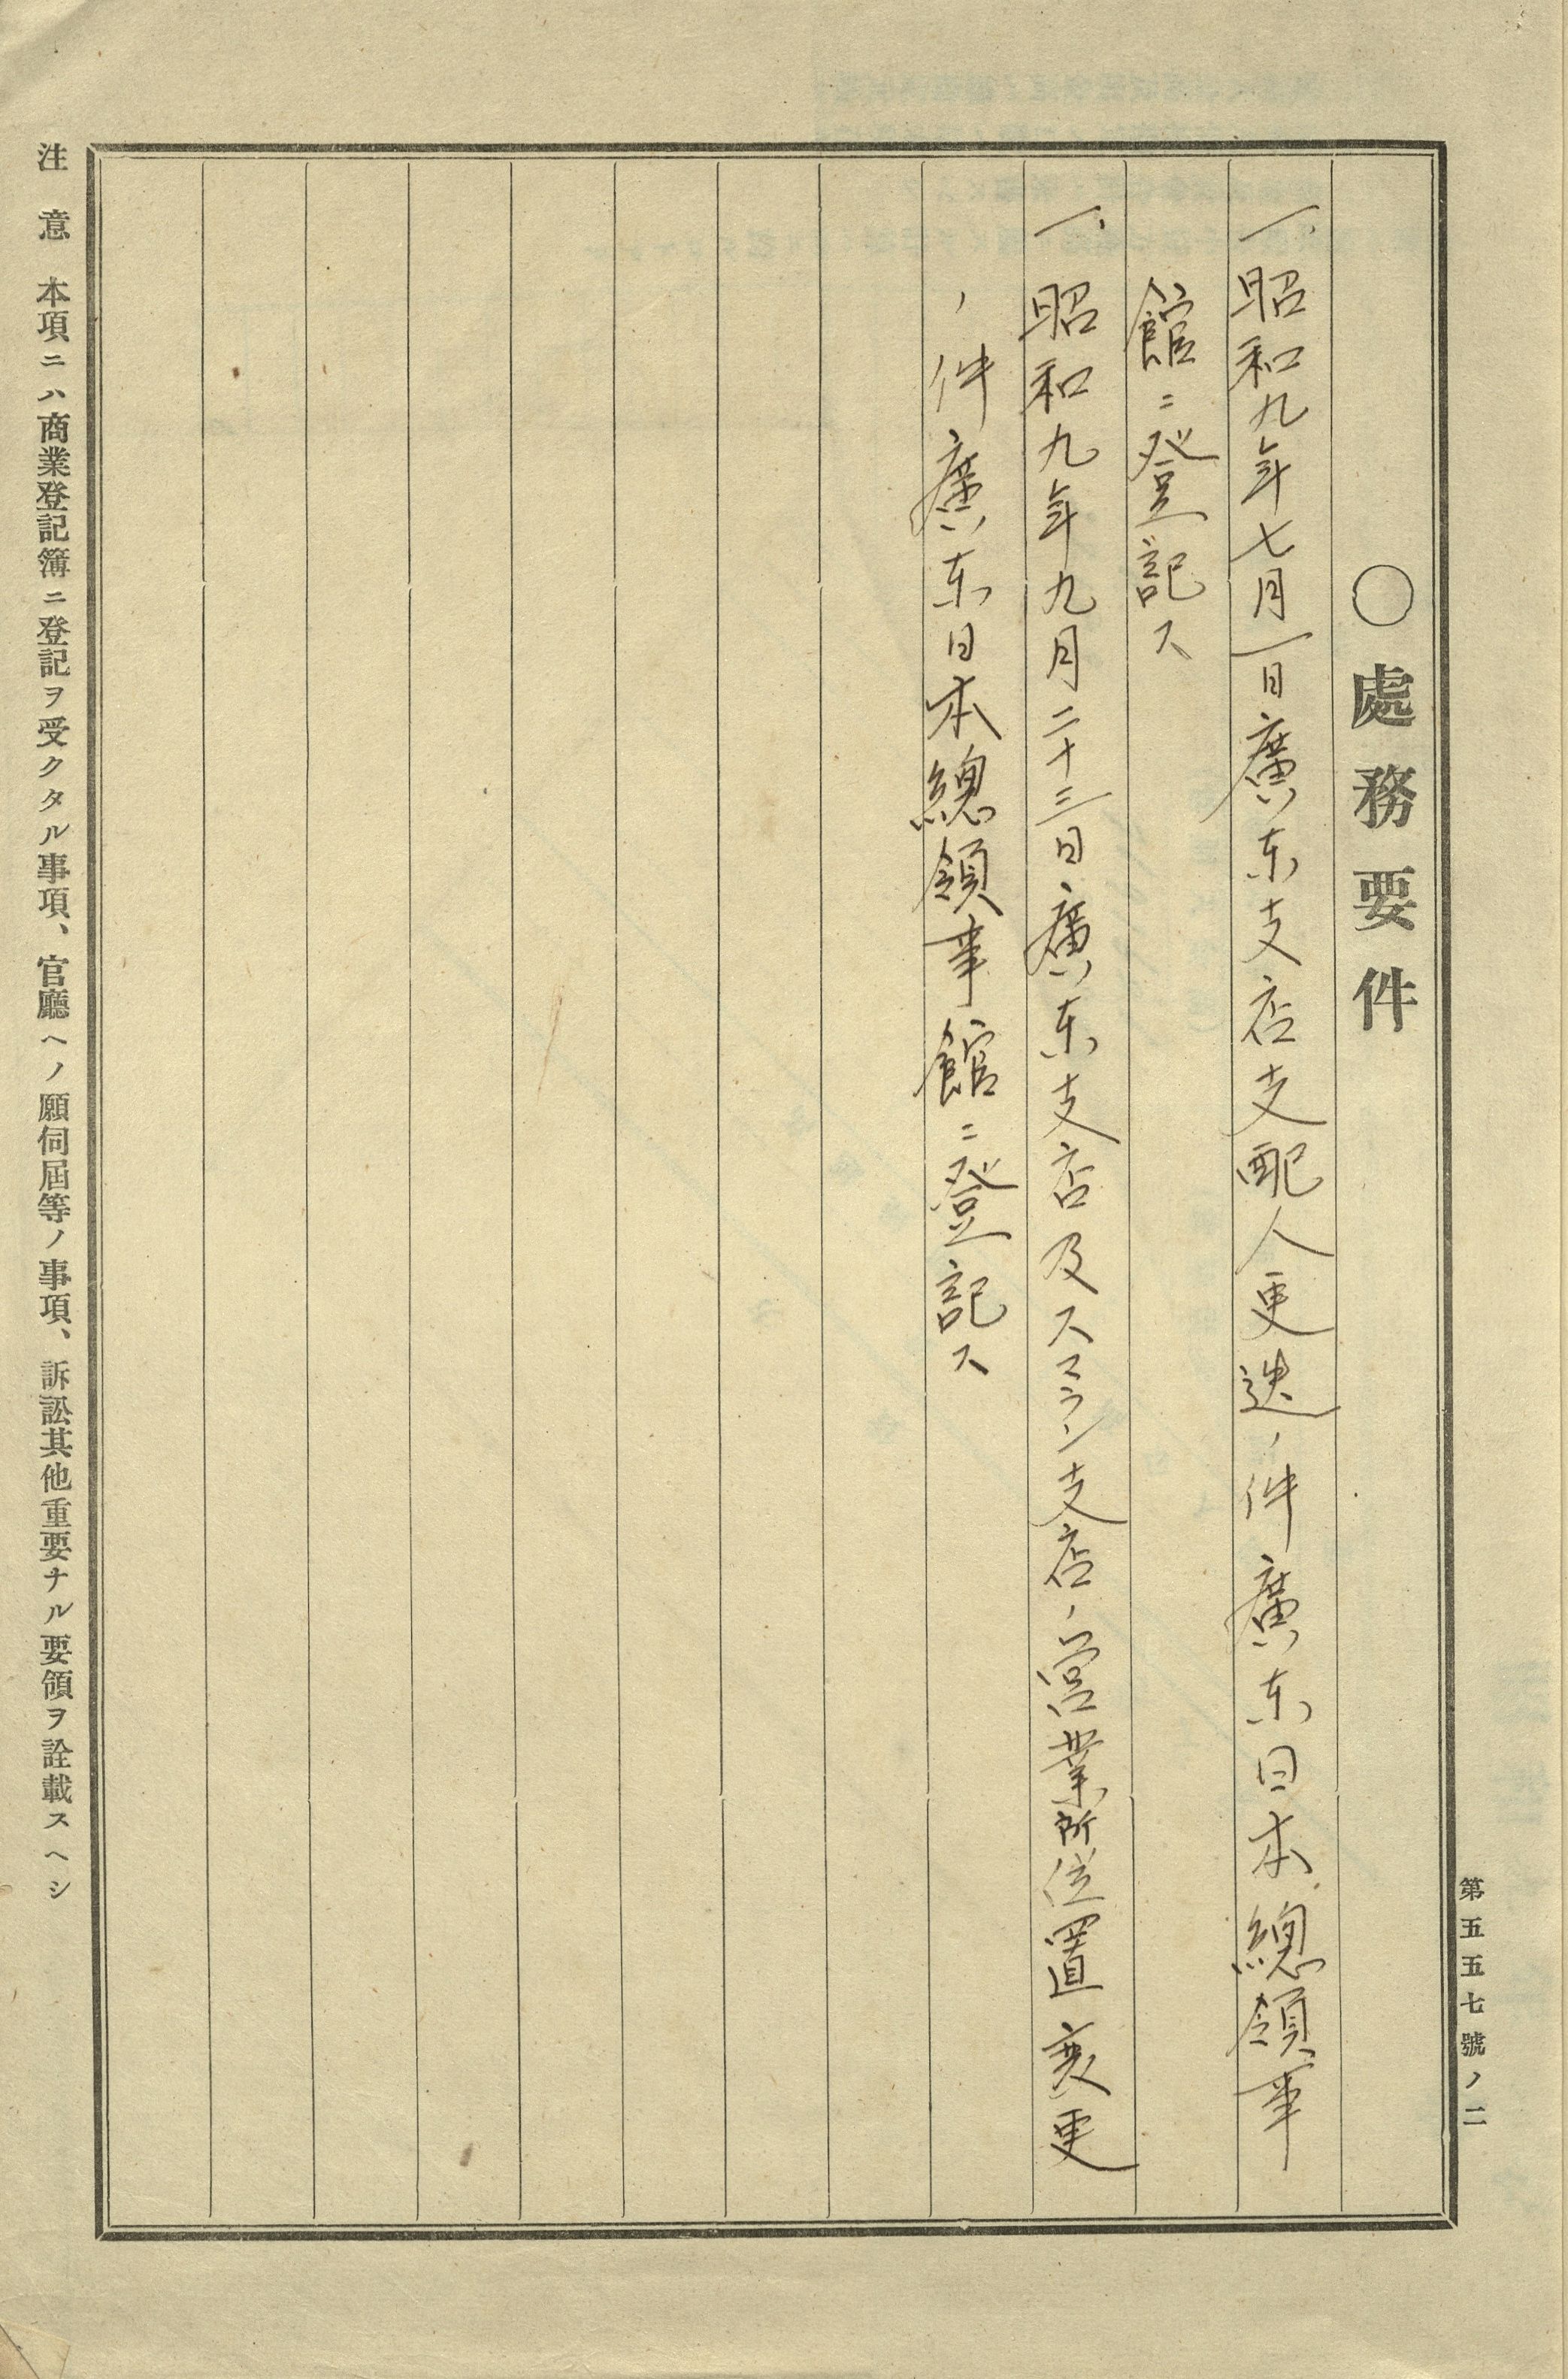 第五五七號ノ二
○處務要件
一、昭和九年七月一日廣東支店支配人更迭ノ件廣東日本總領事
館ニ登記ス
一、昭和九年九月二十三日廣東支店及スマラン支店ノ営業所位置変更
ノ件廣東日本總領事館ニ登記ス
注意 本項ニハ商業登記簿ニ登記ヲ受クタル事項、官廳ヘノ願伺屆等ノ事項、訴訟其他重要ナル要領ヲ詮載スヘシ